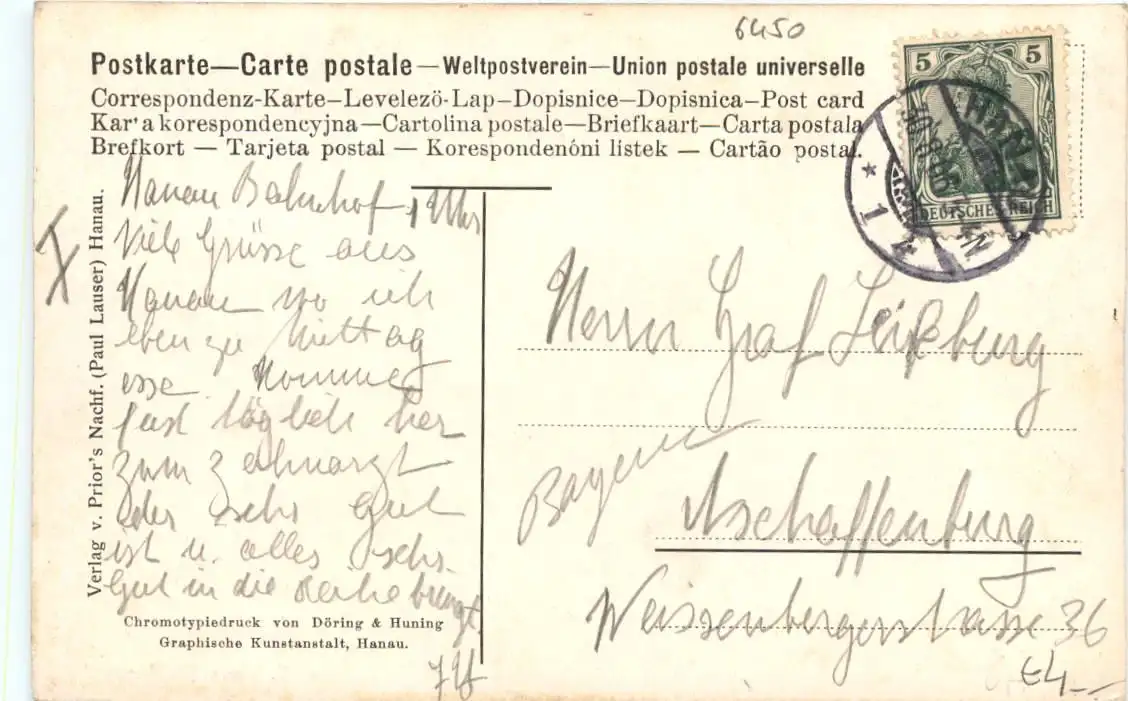 6450
Postkarte—Carte postale—Weltpostverein—Union postale universelle
Correspondenz-Karte—Levelezö-Lap—Dopisnice—Dopisnica—Post card
Kar'a korespondencyjna—Cartolina postale—Briefkaart—Carta postala
Brefkort — Tarjeta postal — Korespondenóni listek — Cartão postal.
5 5
DEUTSCHES REICH
* 1
Verlag v. Prior's Nachf. (Paul Lauser) Hanau.
Hanau Bahnhof 1 Uhr
Viele Grüsse aus
Hanau wo ich
eben zu Mittag
esse Komme
fast täglich her
zum Zahnarzt
der sehr gut
ist u. alles sehr
gut in die Reihe bringt
Chromotypiedruck von Döring & Huning
Graphische Kunstanstalt, Hanau.
Herrn Graf
Bayern
Aschaffenburg
Weissenbergerstrasse 36